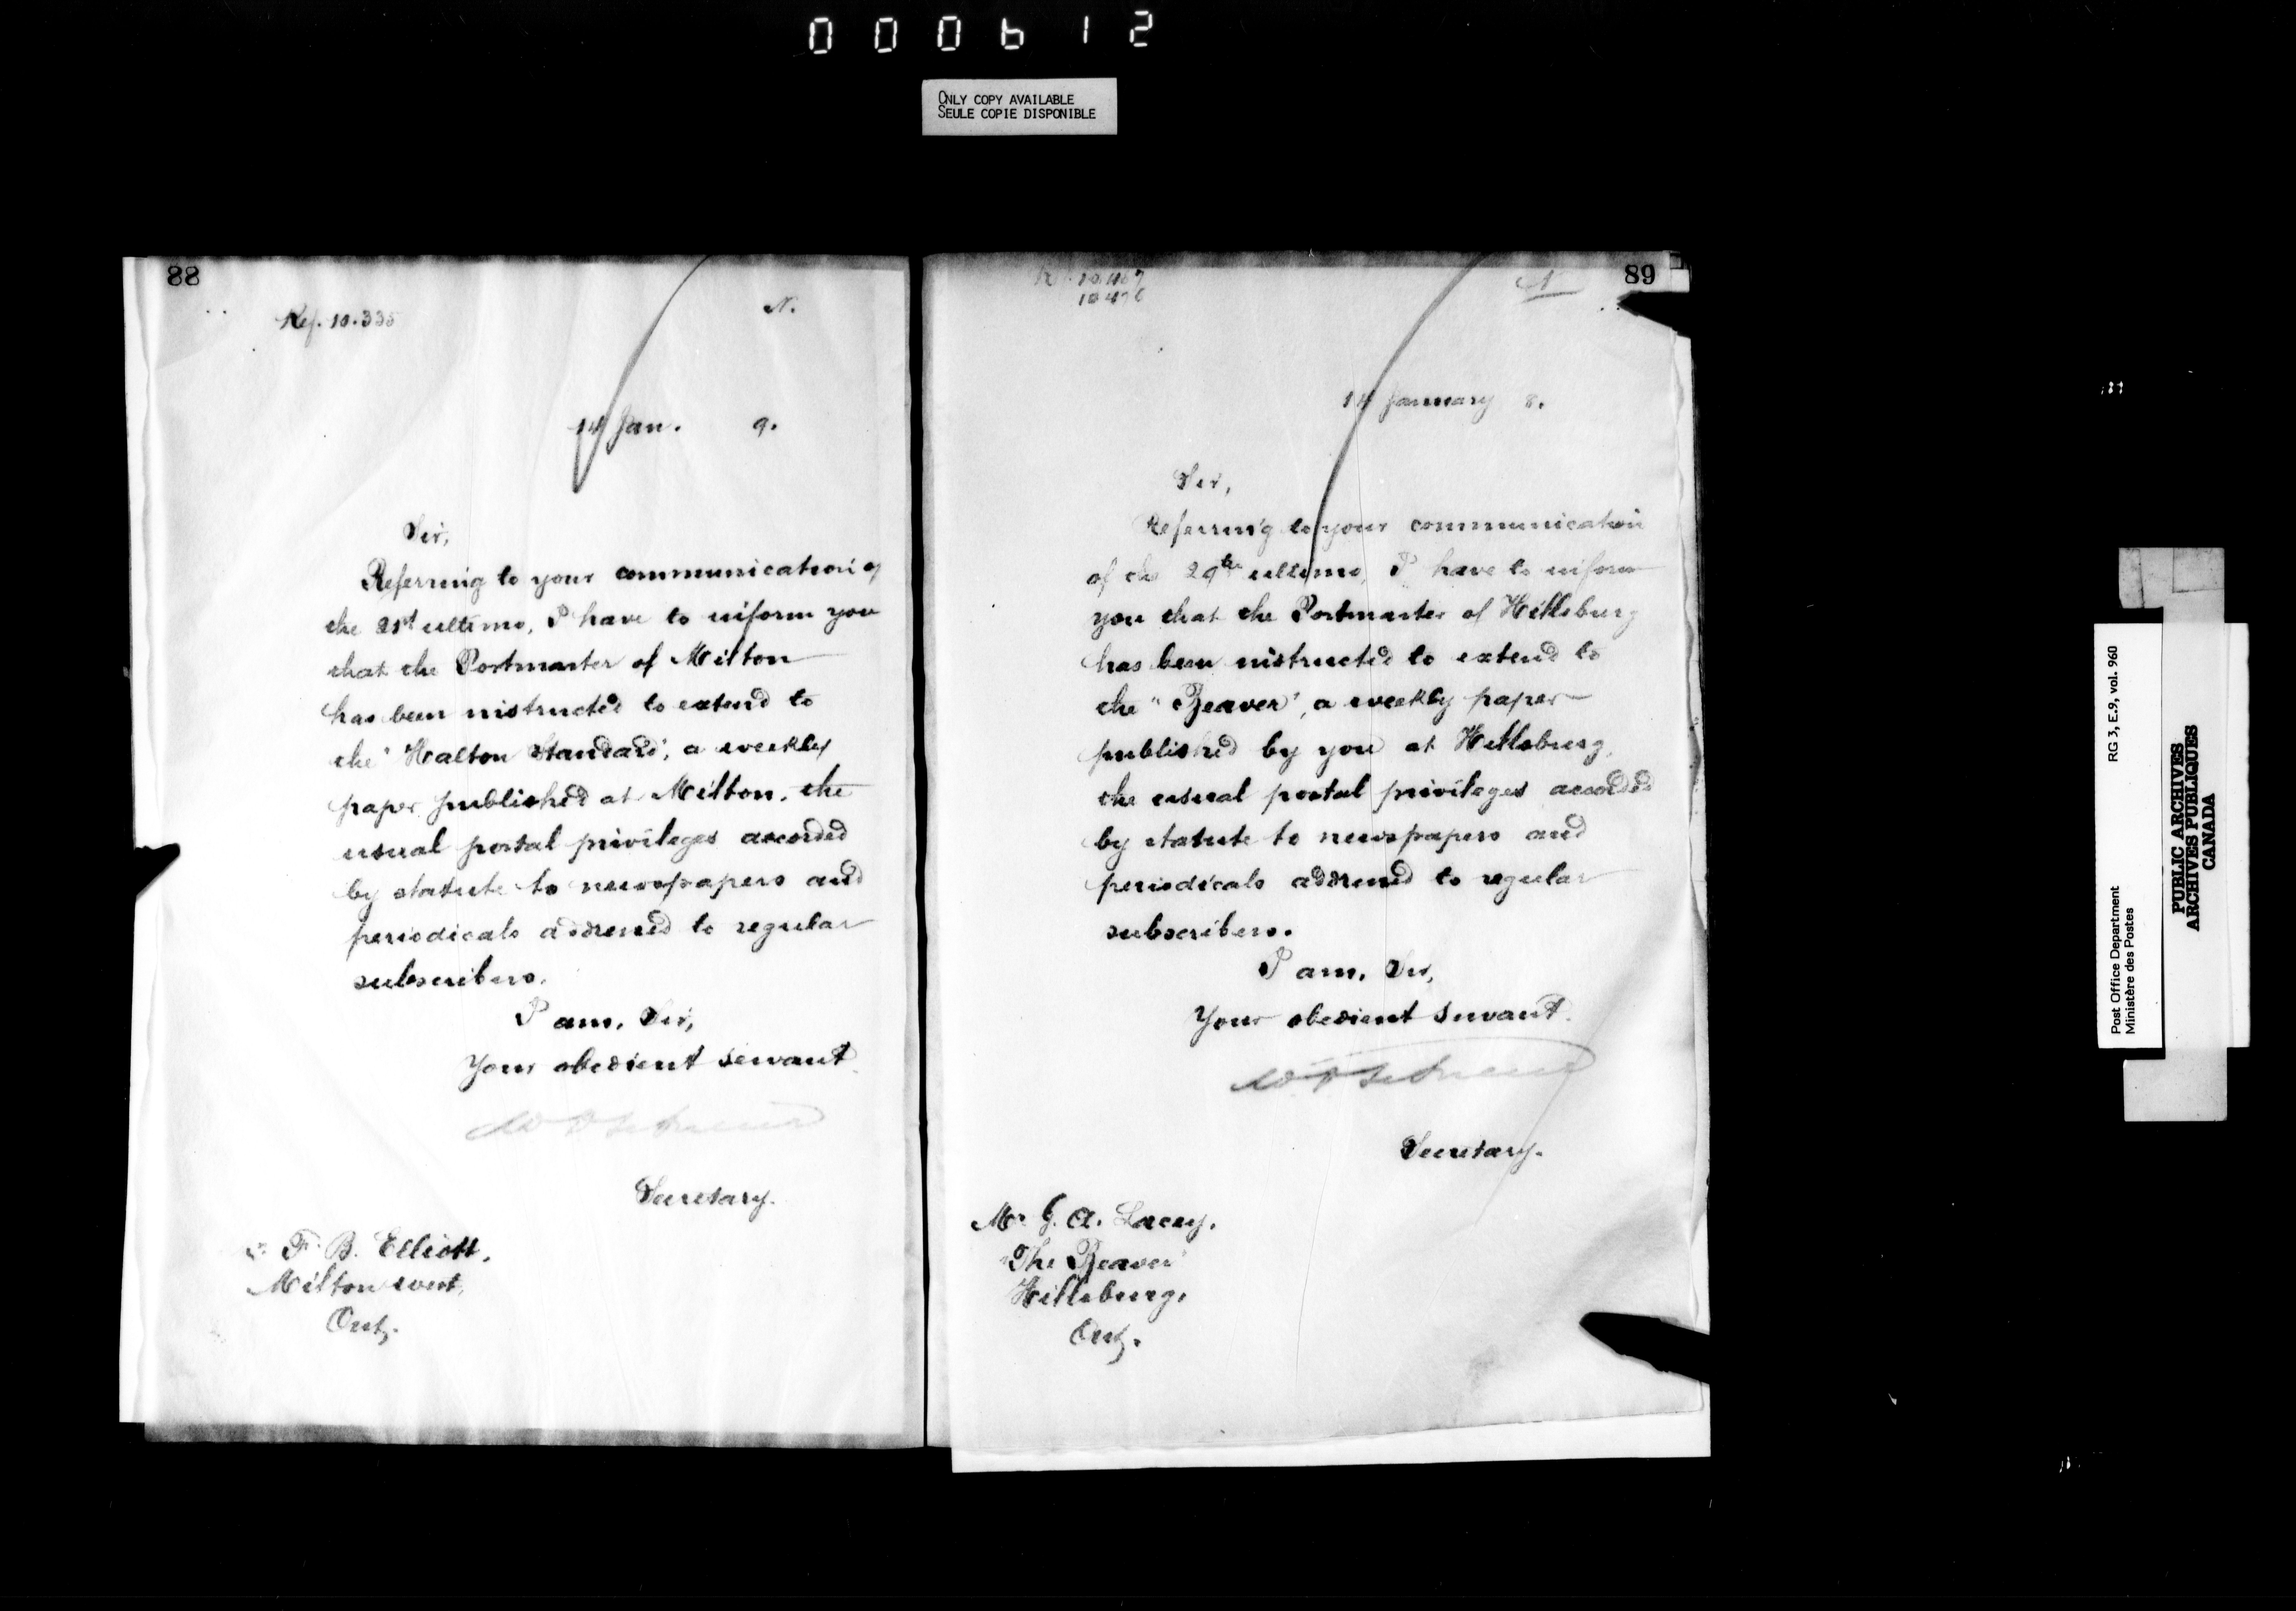 000612
ONLY COPY AVAILABLE
SEULE COPIE DISPONIBLE
88
Ref. 10.335
N.
14 Jan. 9.
Sir,
Referring to your communication of
the 21st ultimo, I have to inform you
that the Postmaster of Milton
has been instructed to extend to
the "Halton Standard", a weekly
paper published at Milton, the
usual postal privileges accorded
by statute to newspapers and
periodicals addressed to regular
subscribers.
I am, Sir,
Your obedient servant.
Secretary.
F. B. Elliott,
Milton west,
Ont.
89
N
14 January 8.
Sir,
Referring to your communication
of the 29th ultimo, I have to inform
you that the Postmaster of Hillsburg
has been instructed to extend to
the "Beaver", a weekly paper
published by you at Hillsburg,
the usual postal privileges accorded
by statute to newspapers and
periodicals addressed to regular
subscribers.
I am, Sir,
Your obedient servant.
Secretary.
Mr G. A. Lacey,
"The Beaver"
Hillsburg,
Ont.
Post Office Department RG 3, E.9, vol. 960
Ministère des Postes
PUBLIC ARCHIVES
ARCHIVES PUBLIQUES
CANADA